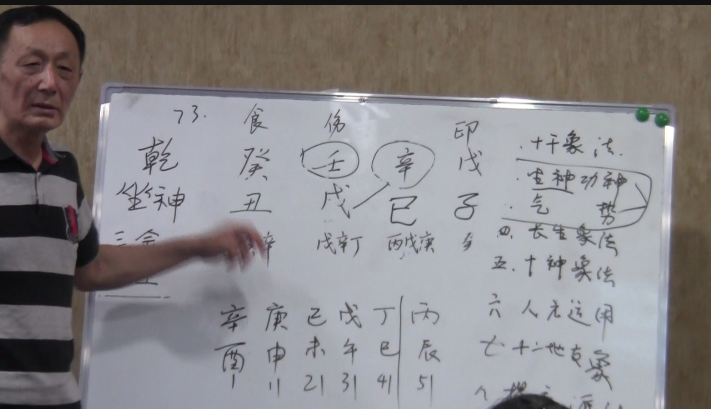 73. 食 伤 印
乾 癸 壬 辛 戊
坐神 丑 戌 巳 子
辛 戊辛丁 丙戊庚
辛 庚 己 戊 丁 丙
酉 申 未 午 巳 辰
1 11 21 31 41 51
.十干象法.
.坐神功神
.气 势
四.长生象法
五.十神象法
六 人元运用
七.十二地支象